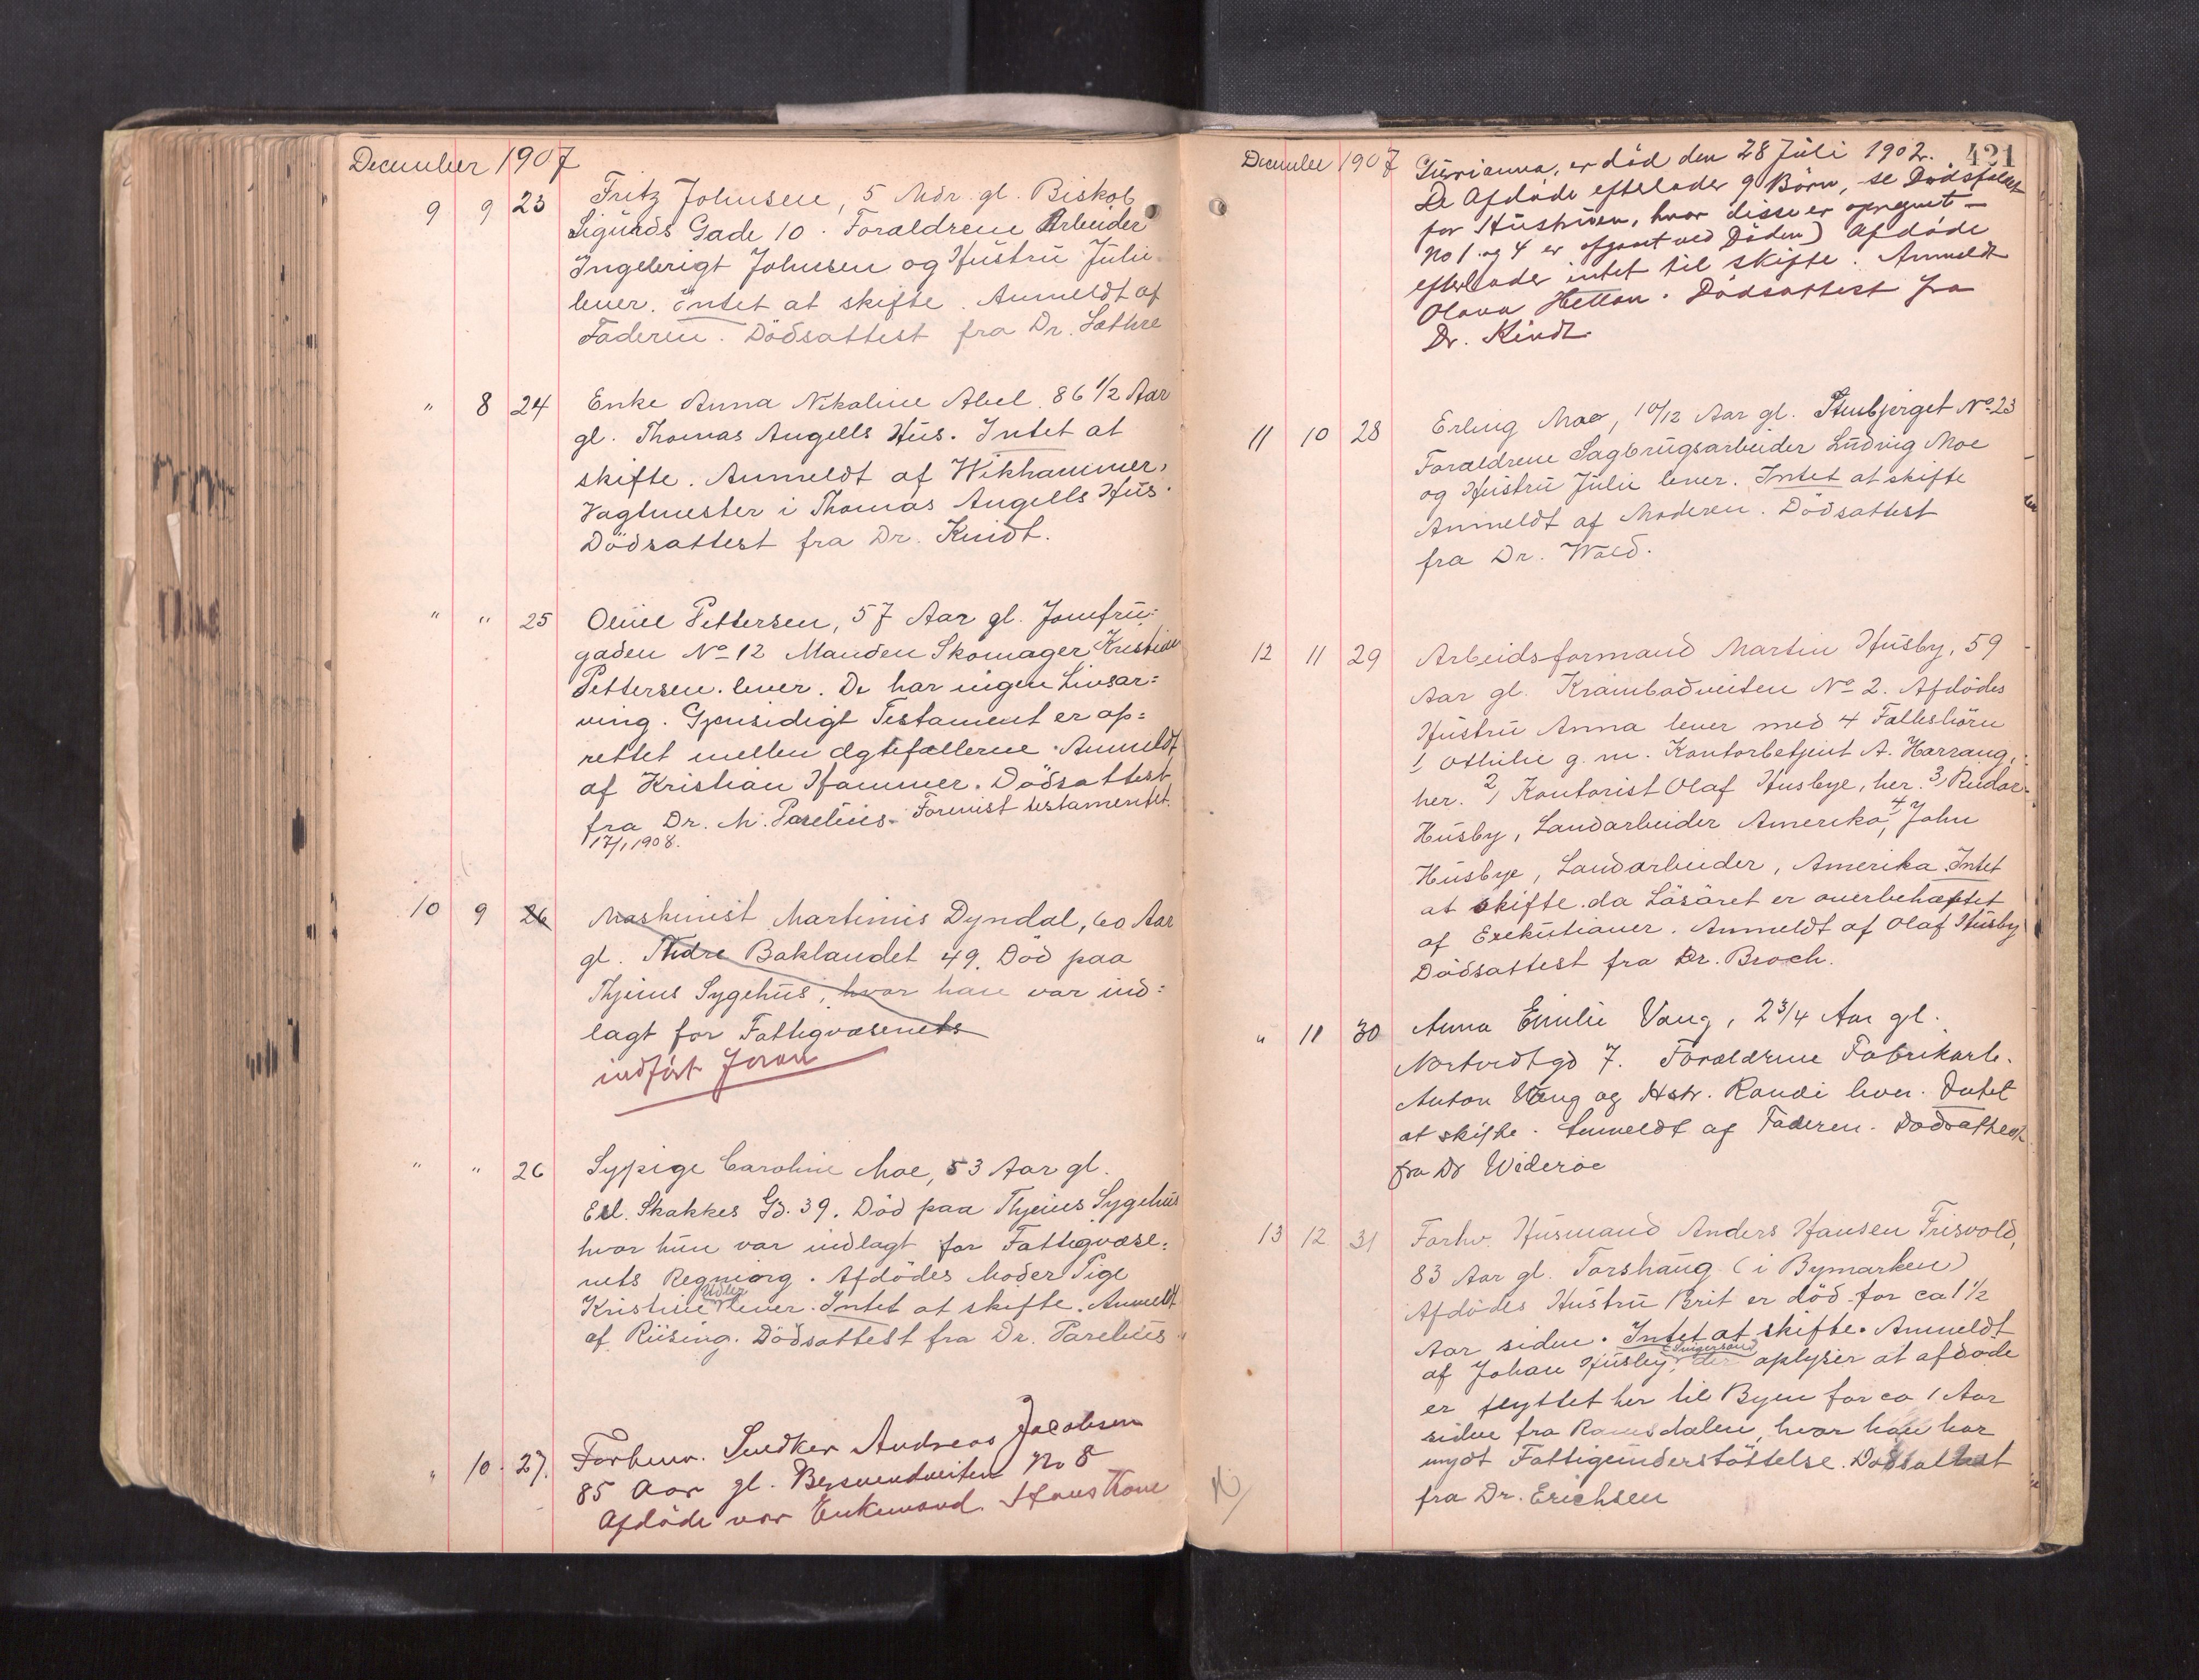 December 1907
9 9 23 Fritz Johnsen, 5 Mdr. gl. Biskob
Sigurds Gade 10. Forældrene Arbeider
Ingebrigt Johnsen og Hustru Julie
lever. Intet at skifte. Anmeldt af
Faderen. Dödsattest fra Dr. Lothre
" 8 24 Enke Anna Nikoline Abel. 86 1/2 Aar
gl. Thomas Angells Hus. Intet at
skifte. Anmeldt af Wikhammer,
Vagtmester i Thomas Angells Hus.
Dödsattest fra Dr. Kindt.
" " 25 Oline Pettersen, 57 Aar gl. Jomfru-
gaden No 12 Manden Skomager Kristian
Pettersen lever. De har ingen Livsar=
ving. Gjensidigt Testament er op=
rettet mellem Ægtefællerne. Anmeldt
af Kristian Hammer. Dödsattest
fra Dr. M. Parelius. Forevist testamentet
17/1 1908.
10 9 26 Maskinist Martinus Dyndal, 60 Aar
gl. Nedre Baklandet 49. Död paa
Thjeims Sygehus, hvor han var ind=
lagt for Fattigvæsenets
indfört foran
" " 26 Sypige Caroline Moe, 53 Aar gl.
Erl. Skakkes Gd. 39. Död paa Thjeims Sygehus
hvor hun var indlagt for Fattigvæse=
nets Regning. Afdödes Moder Pige
Kristine lever. Intet at skifte. Anmeldt
af Riising. Dödsattest fra Dr. Parelius.
" 10 27. Forhenv. Snedker Andreas Jacobsen
85 Aar gl. Bersvendveiten No 8
Afdöde var Enkemand. Hans Kone
December 1907 421
Gurianna, er död den 28 Juli 1902.
De Afdöde efterlader 9 Börn, se Dödsfaldet
for Hustruen, hvor disse er opregnet -
No 1 og 4 er afgaaet ved Döden) Afdöde
efterlader intet til skifte. Anmeldt
Olava Hettan. Dödsattest fra
Dr. Kindt.
11 10 28 Erling Moe, 10/12 Aar gl. Stusbjerget No 23
Forældrene Sagbrugsarbeider Ludvig Moe
og Hustru Julie lever. Intet at skifte
Anmeldt af Moderen. Dödsattest
fra Dr. Wold.
12 11 29 Arbeidsformand Martin Husby, 59
Aar gl. Krambodveiten No 2. Afdödes
Hustru Anna lever med 4 Fællesbörn
1) Othilie g. m. Kontorbetjent A. Harrang,
her. 2) Kontorist Olaf Husbye, her. 3) Rudor
Husby, Landarbeider Amerika, 4) John
Husbye, Landarbeider, Amerika. Intet
at skifte da Lösöret er overbehæftet
af Exekutioner. Anmeldt af Olaf Husby
Dödsattest fra Dr. Broch.
" 11 30 Anna Emilie Vang, 2 3/4 Aar gl.
Nortvedtgd 7. Forældrene Fabrikarb.
Anton Vang og Hstr. Randi lever. Intet
at skifte. Anmeldt af Faderen. Dödsattest
fra Dr Wideröe
13 12 31 Forhv. Husmand Anders Hansen Trisvold,
83 Aar gl. Torshaug (i Bymarken)
Afdödes Hustru Brit er död for ca 1 1/2
Aar siden. Intet at skifte. Anmeldt
af Johan Husby, Svigersönd der oplyser at afdöde
er flyttet her til Byen for ca 1 Aar
siden fra Romsdalen, hvor han har
nydt Fattigunderstöttelse. Dödsattest
fra Dr. Erichsen